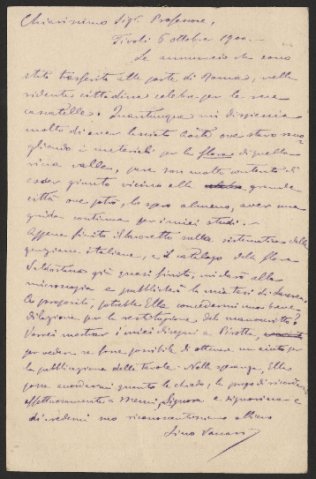 Chiarissimo Sigr. Professore,
Tivoli 6 ottobre 1900.-
Le annuncio che sono
stato trasferito alle porte di Roma, nella
ridente cittadina celebre per le sue
cascatelle. Quantunque mi dispiaccia
molto d'aver lasciato ove stavo racco
gliendo i materiali per la flora di quella
vicina valle, pure son molto contento di
esser giunto vicino alla grande
città ove potrò, lo spero almeno, avere una
guida continua pei miei studi.-
Appena finito il lavoretto sulla sistematica delle
italiane, e il catalogo della flora
Valdostana già quasi finito, mi darò alla
e pubblicherò le
A proposito, potrebbe Ella concedermi una breve
dilazione per la restituzione del manoscritto?
Vorrei mostrar i miei disegni a Pirotta,
per vedere se fosse possibile di ottenere un aiuto per
la pubblicazione delle tavole. Nella speranza, Ella
possa concedermi quanto le chiedo, la prego di ricordarmi
affettuosamente a Signora e Signorina e
di credermi suo riconoscentissimo allievo
Lino Vaccari